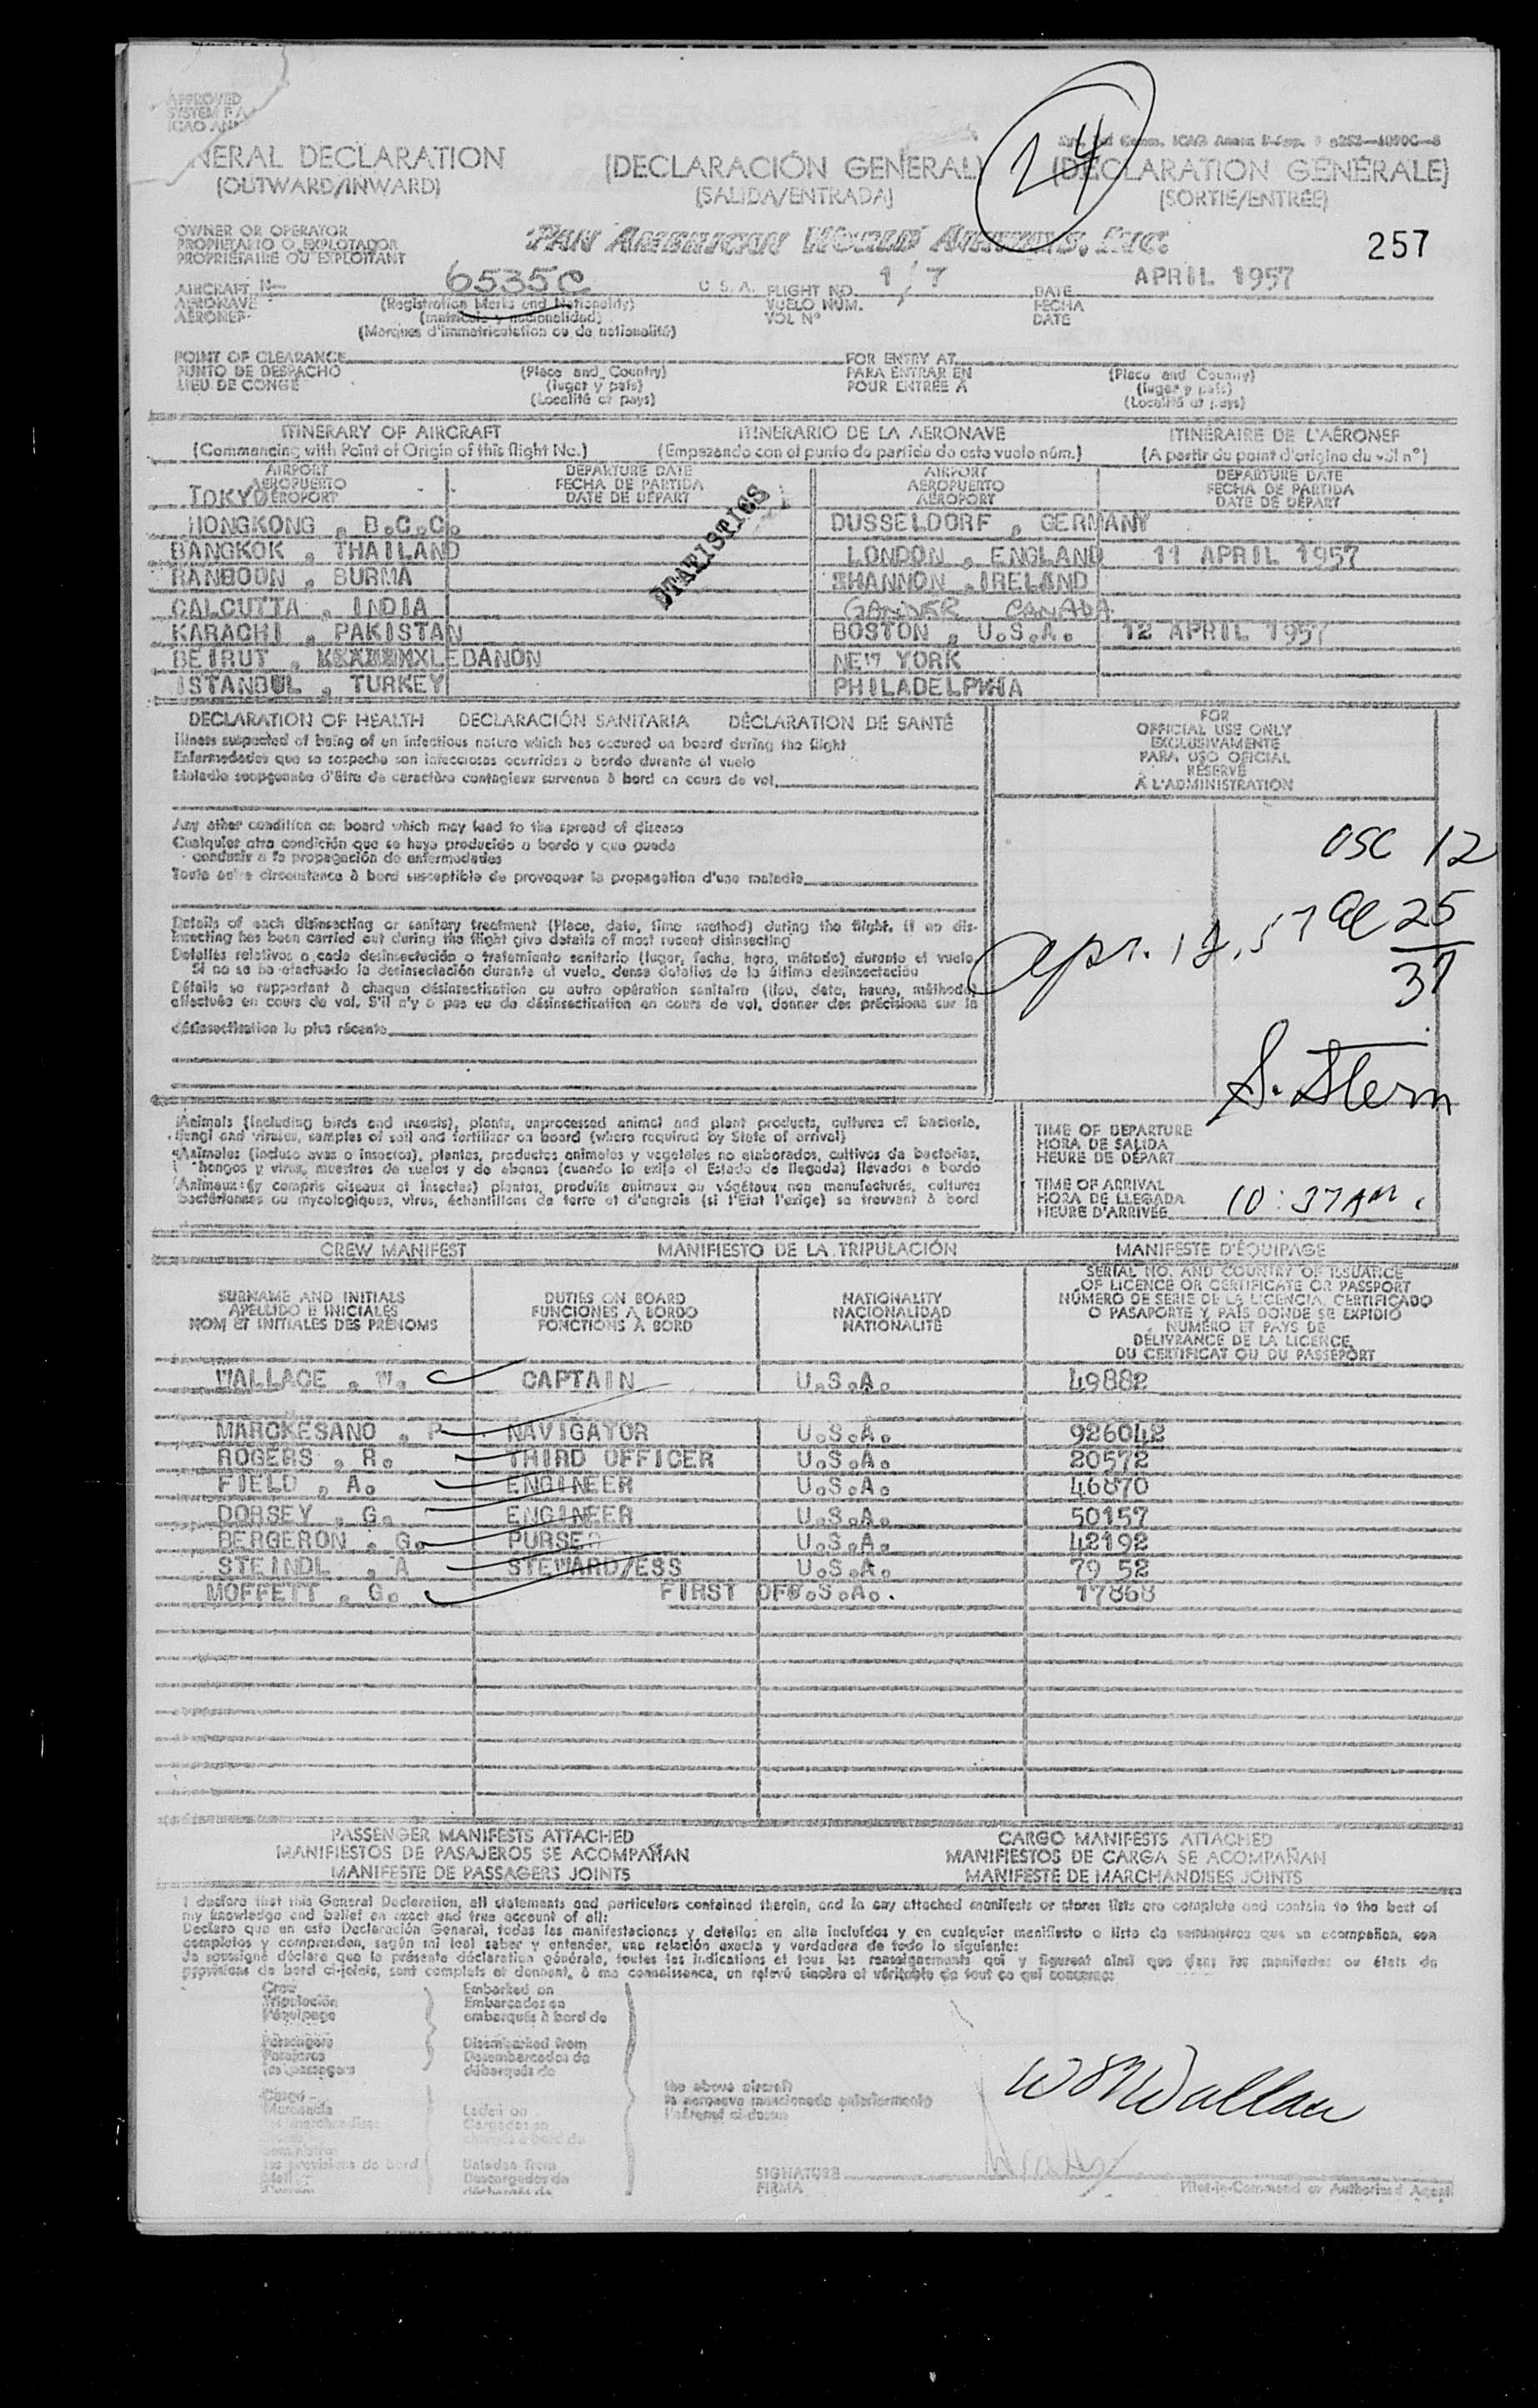 APPROVED
SYSTEM F A
ICAO ANN
24
NERAL DECLARATION (DECLARACIÓN GENERAL) (DÉCLARATION GÉNÉRALE)
(OUTWARD/INWARD) (SALIDA/ENTRADA) (SORTIE/ENTRÉE)
OWNER OR OPERATOR
PROPIETARIO O EXPLOTADOR
PROPRIETAIRE OU EXPLOITANT
PAN AMERICAN WORLD AIRWAYS, INC.
257
AIRCRAFT N- 6535C U. S. A. FLIGHT NO. 1/7 DATE APRIL 1957
AERONAVE (Registration Marks and Nationality) VUELO NUM. FECHA
AÉRONEF (matrícula y nacionalidad) VOL N° DATE
(Marques d'immatriculation ou de nationalité)
POINT OF CLEARANCE FOR ENTRY AT
PUNTO DE DESPACHO (Place and Country) PARA ENTRAR EN (Place and Country)
LIEU DE CONGÉ (lugar y país) POUR ENTRÉE A (lugar y país)
(Localité et pays) (Localité et pays)
ITINERARY OF AIRCRAFT ITINERARIO DE LA AERONAVE ITINÉRAIRE DE L'AÉRONEF
(Commencing with Point of Origin of this flight No.) (Empezando con el punto de partida de este vuelo núm.) (A partir du point d'origine du vol n°)
AIRPORT DEPARTURE DATE AIRPORT DEPARTURE DATE
AEROPUERTO FECHA DE PARTIDA AEROPUERTO FECHA DE PARTIDA
AÉROPORT DATE DE DÉPART AÉROPORT DATE DE DÉPART
TOKYO
STATISTICS
HONGKONG , B.C.C. DUSSELDORF , GERMANY
BANGKOK , THAILAND LONDON , ENGLAND 11 APRIL 1957
RANBOON , BURMA SHANNON , IRELAND
CALCUTTA , INDIA GANDER CANADA
KARACHI , PAKISTAN BOSTON , U.S.A. 12 APRIL 1957
BEIRUT , LEBANON NEW YORK
ISTANBUL , TURKEY PHILADELPHIA
DECLARATION OF HEALTH DECLARACIÓN SANITARIA DÉCLARATION DE SANTÉ
Illness suspected of being of an infectious nature which has occured on board during the flight
Enfermedades que se sospecha son infecciosas ocurridas a bordo durante el vuelo
Maladie soupçonnée d'être de caractère contagieux survenue à bord en cours de vol
FOR
OFFICIAL USE ONLY
EXCLUSIVAMENTE
PARA USO OFICIAL
RÉSERVÉ
À L'ADMINISTRATION
Any other condition on board which may lead to the spread of disease
Cualquier otra condición que se haya producido a bordo y que pueda
conducir a la propagación de enfermedades
Toute autre circonstance à bord susceptible de provoquer la propagation d'une maladie
USC 12
al 25
37
Apr. 12, 57
S. Stern
Details of each disinsecting or sanitary treatment (Place, date, time method) during the flight. If no dis-
insecting has been carried out during the flight give details of most recent disinsecting
Detalles relativos a cada desinsectación o tratamiento sanitario (lugar, fecha, hora, método) durante el vuelo.
Si no se ha efectuado la desinsectación durante el vuelo, dense detalles de la última desinsectación
Détails se rapportant à chaque désinsectisation ou autre opération sanitaire (lieu, date, heure, méthode)
effectuée en cours de vol. S'il n'y a pas eu de désinsectisation en cours de vol, donner des précisions sur la
désinsectisation la plus récente
Animals (including birds and insects), plants, unprocessed animal and plant products, cultures of bacteria,
fungi and viruses, samples of soil and fertilizer on board (where required by State of arrival)
Animales (incluso aves o insectos), plantas, productos animales y vegetales no elaborados, cultivos de bacterias,
hongos y virus, muestras de suelos y de abonos (cuando lo exija el Estado de llegada) llevados a bordo
Animaux (y compris oiseaux et insectes) plantes, produits animaux ou végétaux non manufacturés, cultures
bactériennes ou mycologiques, virus, échantillons de terre et d'engrais (si l'Etat l'exige) se trouvant à bord
TIME OF DEPARTURE
HORA DE SALIDA
HEURE DE DÉPART
TIME OF ARRIVAL
HORA DE LLEGADA
HEURE D'ARRIVÉE 10:37 AM.
CREW MANIFEST MANIFIESTO DE LA TRIPULACIÓN MANIFESTE D'ÉQUIPAGE
SURNAME AND INITIALS
APELLIDO E INICIALES
NOM ET INITIALES DES PRÉNOMS
DUTIES ON BOARD
FUNCIONES A BORDO
FONCTIONS À BORD
NATIONALITY
NACIONALIDAD
NATIONALITÉ
SERIAL NO. AND COUNTRY OF ISSUANCE
OF LICENCE OR CERTIFICATE OR PASSPORT
NÚMERO DE SERIE DE LA LICENCIA, CERTIFICADO
O PASAPORTE Y PAÍS DONDE SE EXPIDIÓ
NUMÉRO ET PAYS DE
DÉLIVRANCE DE LA LICENCE,
DU CERTIFICAT OU DU PASSEPORT
WALLACE , W. CAPTAIN U.S.A. 49882
MARCKESANO , P NAVIGATOR U.S.A. 926042
ROGERS , R. THIRD OFFICER U.S.A. 20572
FIELD , A. ENGINEER U.S.A. 46870
DORSEY , G. ENGINEER U.S.A. 50157
BERGERON , G. PURSER U.S.A. 42192
STEINDL , A STEWARD/ESS U.S.A. 79 52
MOFFETT , G. FIRST OFF U.S.A. 17868
PASSENGER MANIFESTS ATTACHED CARGO MANIFESTS ATTACHED
MANIFIESTOS DE PASAJEROS SE ACOMPAÑAN MANIFIESTOS DE CARGA SE ACOMPAÑAN
MANIFESTE DE PASSAGERS JOINTS MANIFESTE DE MARCHANDISES JOINTS
I declare that this General Declaration, all statements and particulars contained therein, and in any attached manifests or stores lists are complete and contain to the best of
my knowledge and belief an exact and true account of all:
Declaro que en esta Declaración General, todas las manifestaciones y detalles en ella incluídos y en cualquier manifiesto o lista de suministros que se acompañan, son
completos y comprenden, según mi leal saber y entender, una relación exacta y verdadera de todo lo siguiente:
Je soussigné déclare que la présente déclaration générale, toutes les indications et tous les renseignements qui y figurent ainsi que dans les manifestes ou états de
provisions de bord ci-joints, sont complets et donnent, à ma connaissance, un relevé sincère et véritable de tout ce qui concerne:
Crew Embarked on
Tripulación Embarcados en
l'équipage embarqués à bord de
Passengers Disembarked from
Pasajeros Desembarcados de
les passagers débarqués de
Cargo the above aircraft
Mercancía Laden on la aeronave mencionada anteriormente
Cargados en l'aéronef ci-dessus
chargés à bord de
les provisions de bord Unladen from
Descargados de
W S Wallace
SIGNATURE
FIRMA
Pilot-in-Command or Authorized Agent